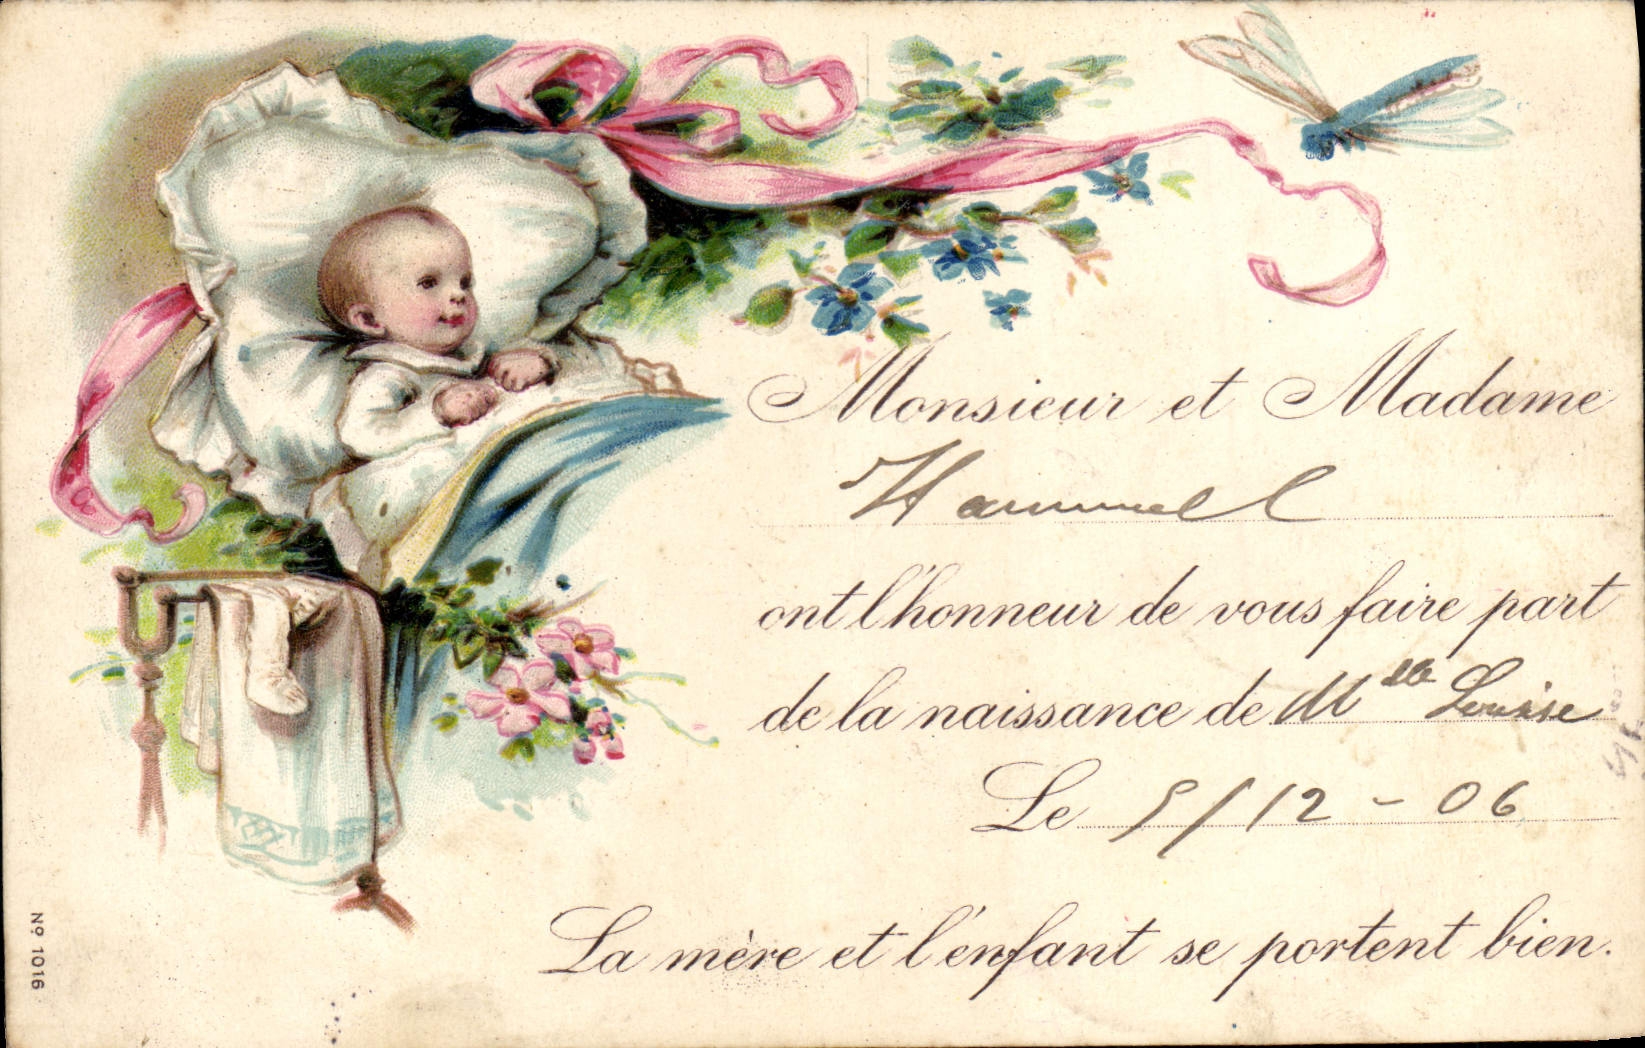 Monsieur et Madame
Hammell
ont l'honneur de vous faire part
de la naissance de Mlle Louise
Le 5/12-06
La mère et l'enfant se portent bien.
Nº 1016